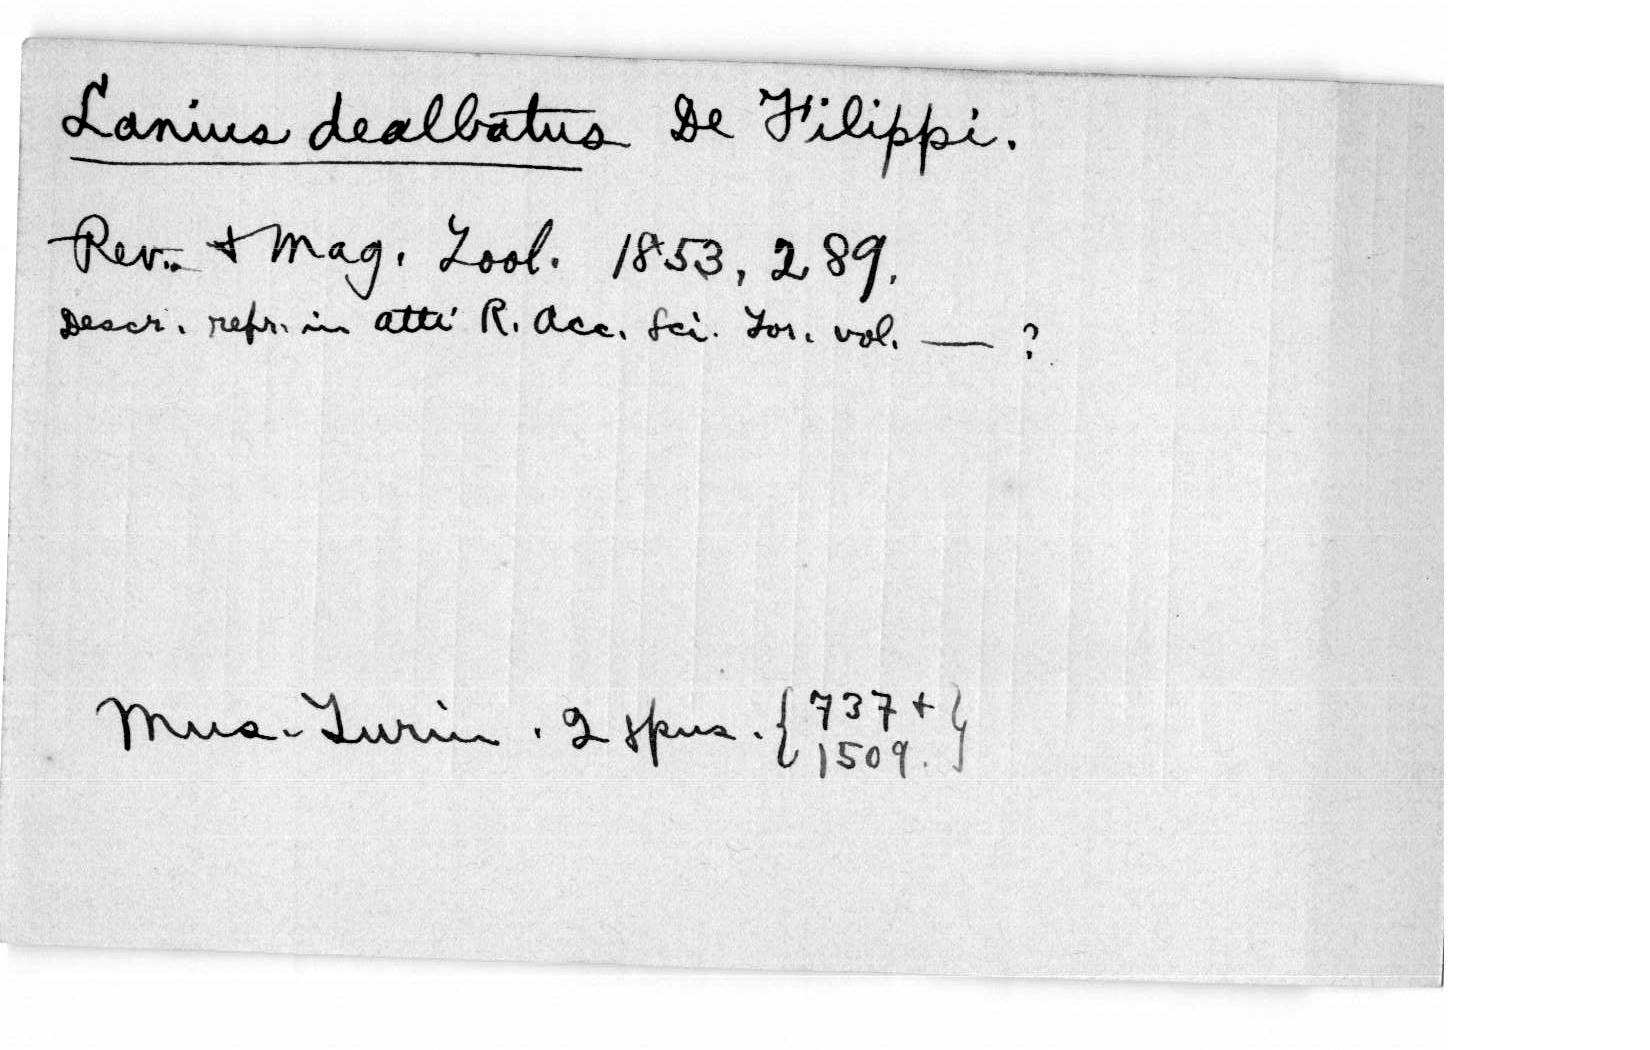 Lanius dealbatus De Filippi.
Rev. & Mag. Zool. 1853, 289.
Descr. repr. in atti R. Acc. Sci. Tor. vol. — ?
Mus. Turin. 2 spns. { 737 + }
{ 1509. }